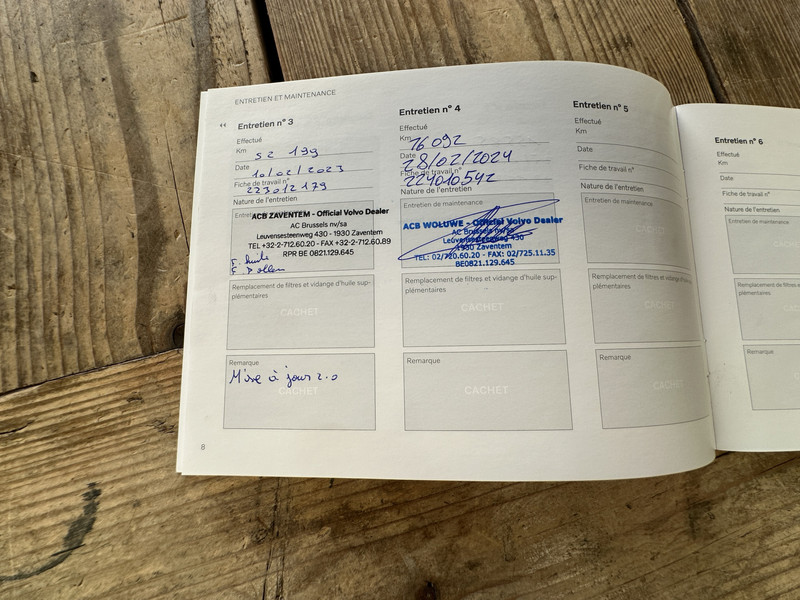 ENTRETIEN ET MAINTENANCE
Entretien n° 3
Effectué
Km 52 199
Date 10/02/2023
Fiche de travail n° 223012179
Nature de l'entretien
ACB ZAVENTEM - Official Volvo Dealer
AC Brussels nv/sa
Leuvensesteenweg 430 - 1930 Zaventem
TEL +32-2-712.60.20 - FAX +32-2-712.60.89
RPR BE 0821.129.645
Remplacement de filtres et vidange d'huile sup-
plémentaires
CACHET
Remarque
Mise à jour 2.0
CACHET
8
Entretien n° 4
Effectué
Km 76 092
Date 28/02/2024
Fiche de travail n° 224010542
Nature de l'entretien
Entretien de maintenance
ACB WOLUWE - Official Volvo Dealer
AC Brussels nv/sa
Leuvensesteenweg 430
1930 Zaventem
TEL: 02/720.60.20 - FAX: 02/725.11.35
BE0821.129.645
Remplacement de filtres et vidange d'huile sup-
plémentaires
CACHET
Remarque
CACHET
Entretien n° 5
Effectué
Km
Date
Fiche de travail n°
Nature de l'entretien
Entretien de maintenance
Remplacement de filtres et vidange d'huile sup-
plémentaires
Remarque
Entretien n° 6
Effectué
Km
Date
Fiche de travail n°
Nature de l'entretien
Entretien de maintenance
Remplacement de filtres
plémentaires
Remarque